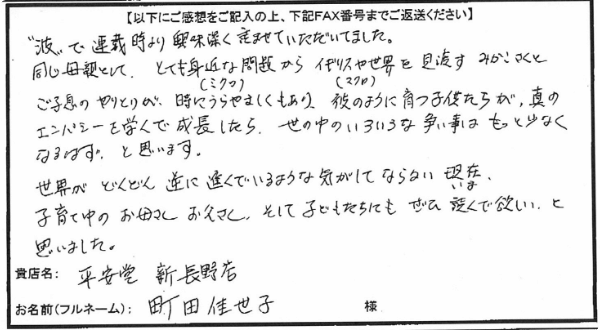 【以下にご感想をご記入の上、下記FAX番号までご返送ください】
"波"で連載時より興味深く読ませていただいてました。
同じ母親として、とても身近な問題からイギリスや世界を見渡すみかこさんと
(ミクロ) (マクロ)
ご子息のやりとりが、時にうらやましくもあり、彼のように育つ子供たちが、真の
エンパシーを学んで成長したら、世の中のいろいろな争い事はもっと少なく
なるはず。と思います。
世界がどんどん逆に進んでいるような気がしてならない現在、
いま
子育て中のお母さんお父さん、そして子どもたちにもぜひ読んで欲しい、と
思いました。
貴店名: 平安堂 新長野店
お名前(フルネーム): 町田佳世子 様